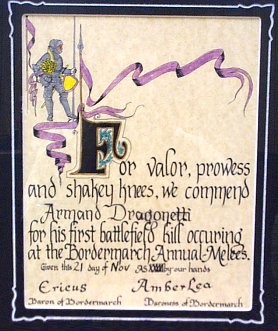 For valor, prowess
and shakey knees, we commend
Armand Dragonetti
for his first battlefield kill occuring
at the Bordermarch Annual Melees.
Given this 21 day of Nov AS XXXII by our hands
Ericus AmberLea
Baron of Bordermarch Baroness of Bordermarch